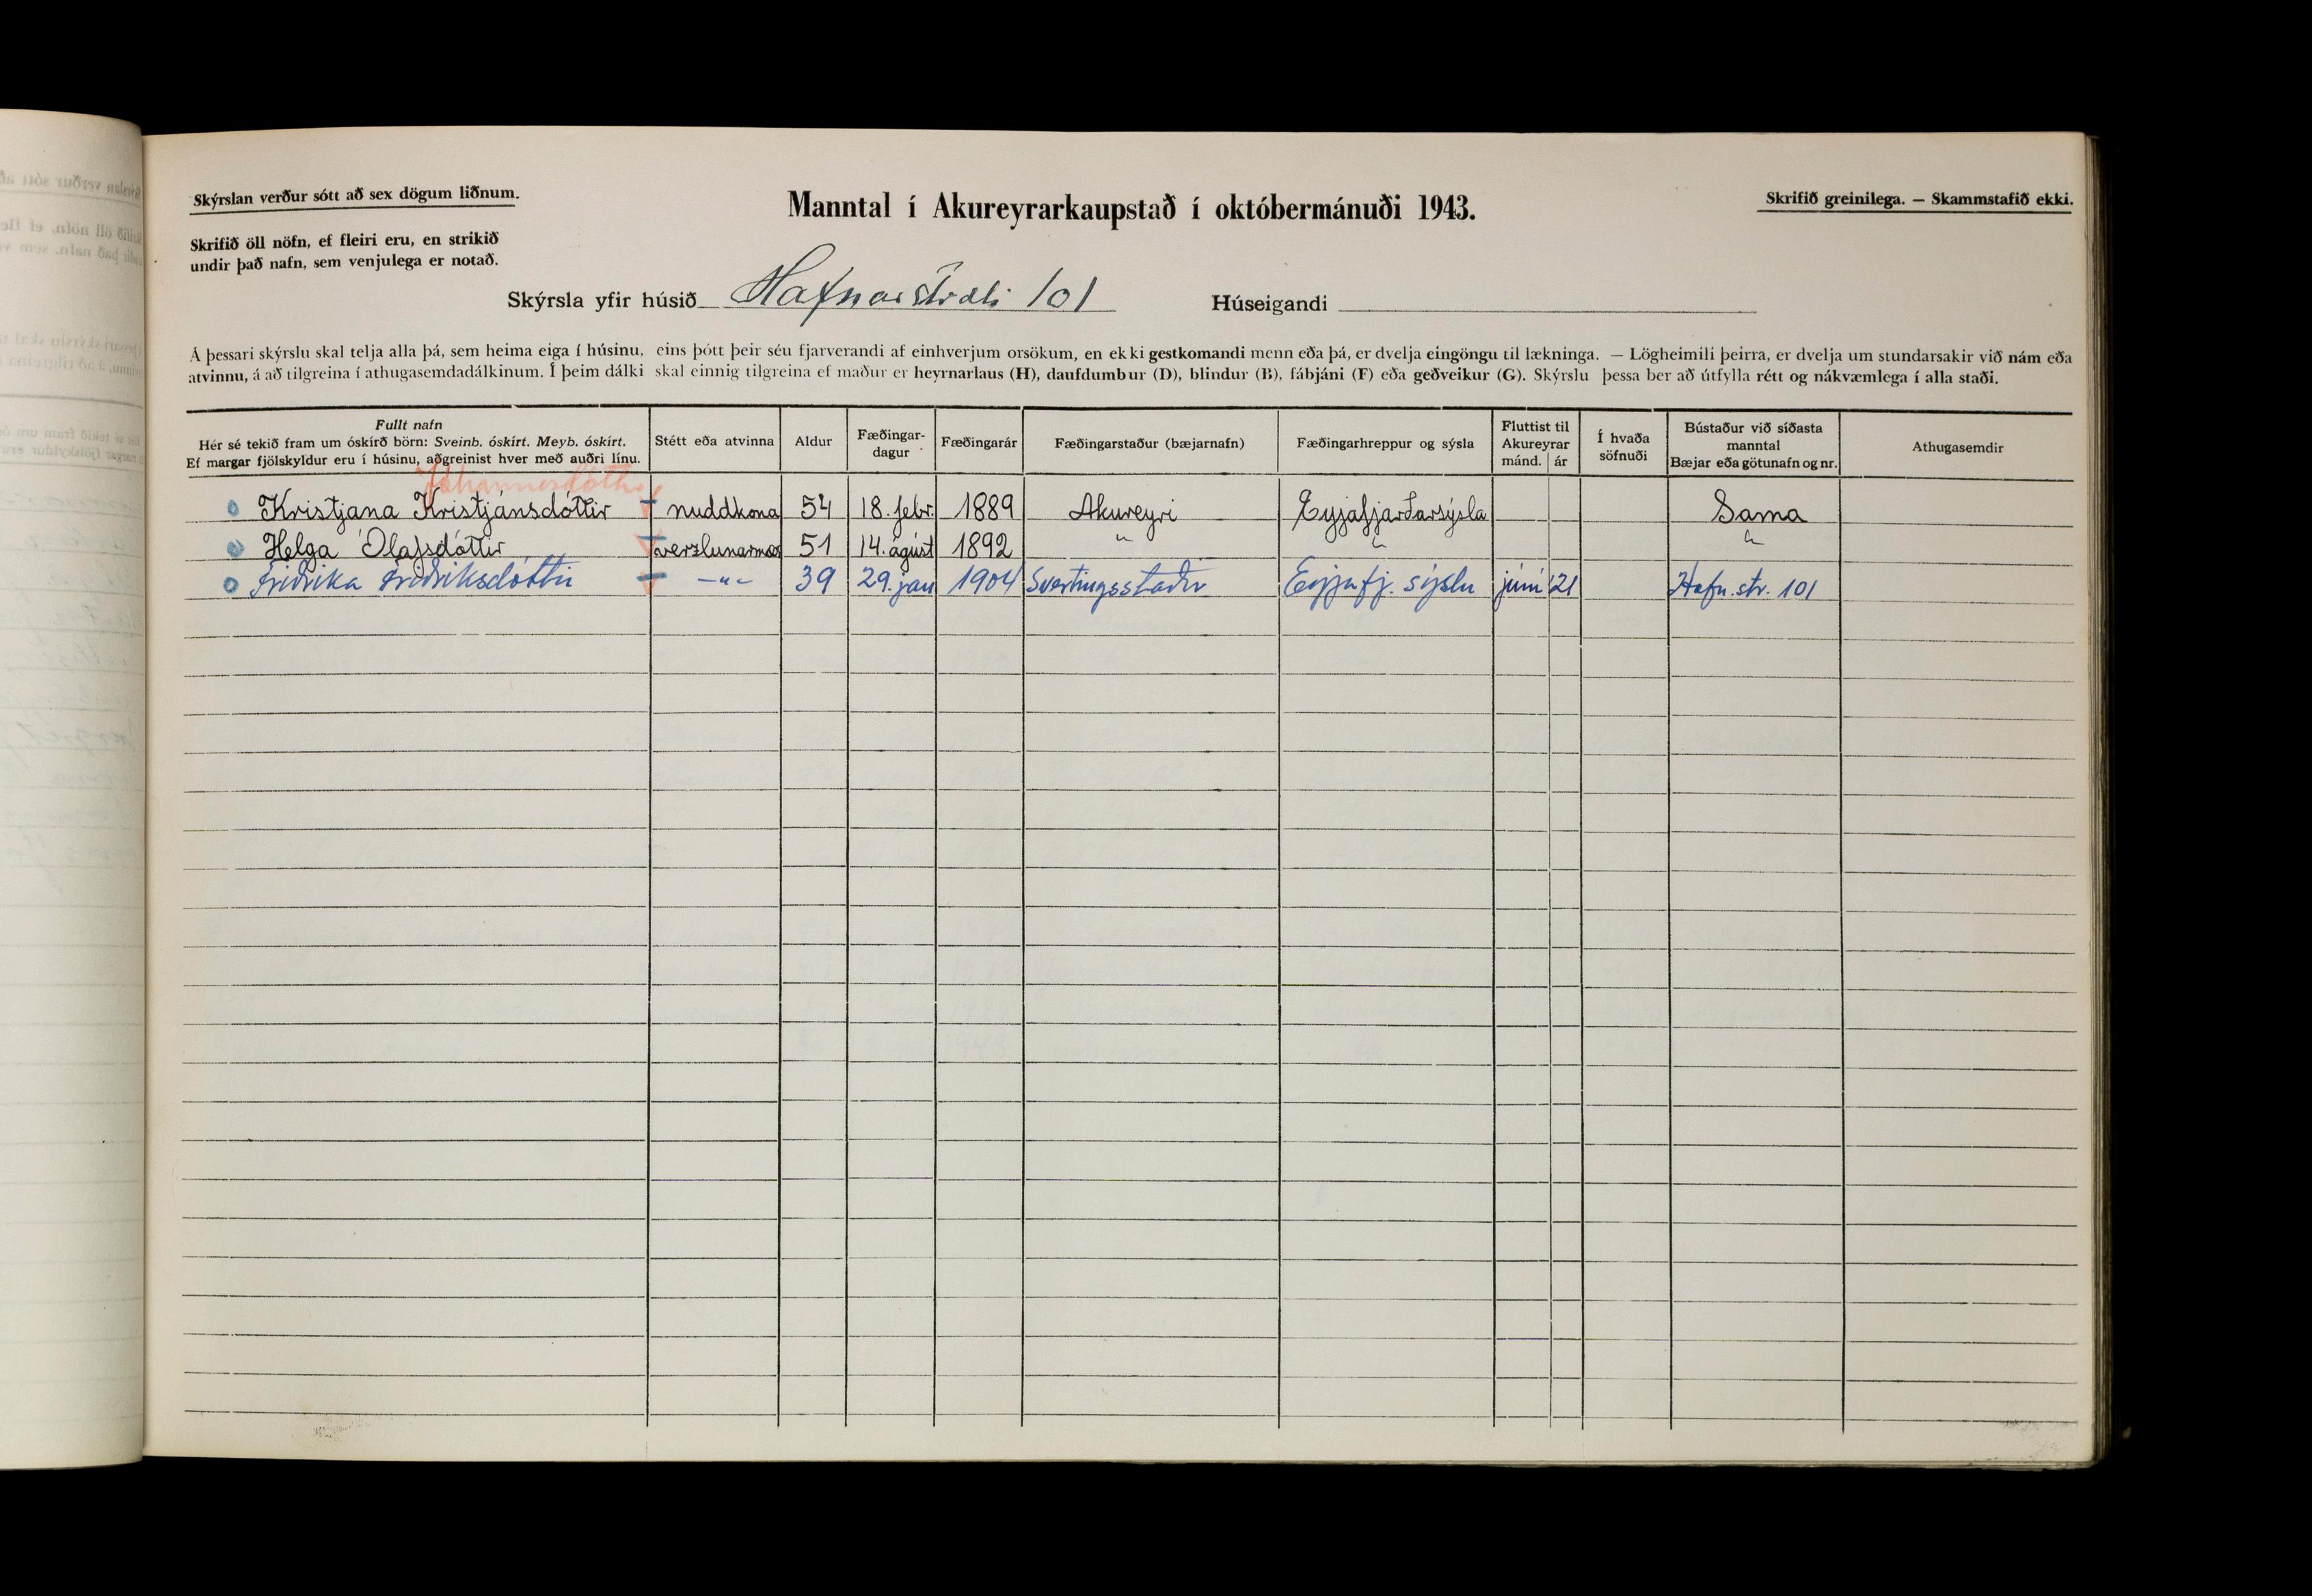 Skýrslan verður sótt að sex dögum liðnum.
Manntal í Akureyrarkaupstað í októbermánuði 1943.
Skrifið greinilega. — Skammstafið ekki.
Skrifið öll nöfn, ef fleiri eru, en strikið
undir það nafn, sem venjulega er notað.
Skýrsla yfir húsið Hafnarstræti 101 Húseigandi
Á þessari skýrslu skal telja alla þá, sem heima eiga í húsinu, eins þótt þeir séu fjarverandi af einhverjum orsökum, en ekki gestkomandi menn eða þá, er dvelja eingöngu til lækninga. — Lögheimili þeirra, er dvelja um stundarsakir við nám eða
atvinnu, á að tilgreina í athugasemdadálkinum. Í þeim dálki skal einnig tilgreina ef maður er heyrnarlaus (H), daufdumbur (D), blindur (B), fábjáni (F) eða geðveikur (G). Skýrslu þessa ber að útfylla rétt og nákvæmlega í alla staði.
Fullt nafn
Hér sé tekið fram um óskírð börn: Sveinb. óskírt. Meyb. óskírt.
Ef margar fjölskyldur eru í húsinu, aðgreinist hver með auðri línu.
Stétt eða atvinna
Aldur
Fæðingar-
dagur
Fæðingarár
Fæðingarstaður (bæjarnafn)
Fæðingarhreppur og sýsla
Fluttist til
Akureyrar
mánd. ár
Í hvaða
söfnuði
Bústaður við síðasta
manntal
Bæjar eða götunafn og nr.
Athugasemdir
Jóhannesdóttir
Kristjana Kristjánsdóttir nuddkona 54 18. febr. 1889 Akureyri Eyjafjarðarsýsla Sama
Helga Ólafsdóttir 51 14. ágúst 1892 " " "
Friðrika Friðriksdóttir —"— 39 29. jan 1904 Svertingsstaðir Eyjafj. sýslu júní '21 Hafn. str. 101